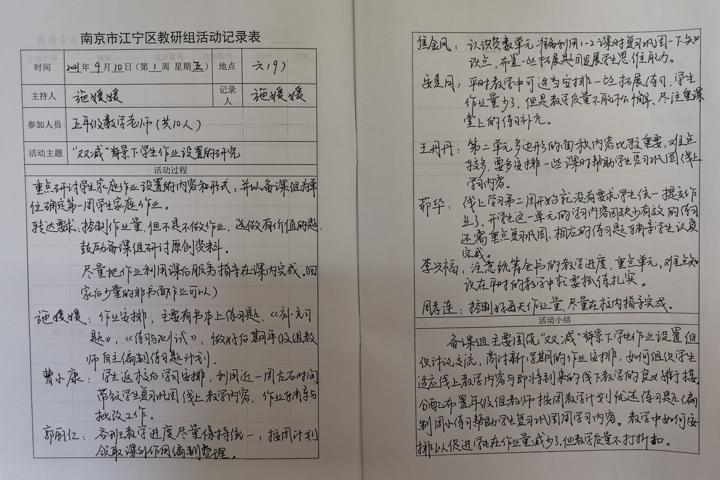 南京市江宁区教研组活动记录表
时间 2021年9月10日(第1周 星期五) 地点 六(9)
主持人 施媛媛 记录人 施媛媛
参加人员 五年级数学老师(共10人)
活动主题 "双减"背景下学生作业设置的研究
活动过程
重点研讨学生家庭作业设置的内容和形式,并以备课组为单
位确定第一周学生家庭作业。
转达要求:控制作业量,但不是不做作业,选做有价值的题,
鼓励备课组研讨原创资料。
尽量把作业利用课后服务指导在课内完成。(回
家后少量的非书面作业可以)
施媛媛:作业安排,主要有书本上练习题、《补充习
题》,《练习与测试》,做好后期年级组教
师自主编制练习题计划。
曹小康:学生返校后学习安排,利用近一周左右时间
带领学生复习巩固线上教学内容,作业辅导与
批改工作。
郭丽红:各班主教学进度尽量保持统一,按周计划
领取课外作用编制整理。
焦金凤:认识负数单元准备利用1-2课时复习巩固一下知
识点,布置一些拓展题目发展学生思维能力。
平时教学中可适当安排一些拓展练习,学生
作业量少了,但是教学质量不能打折扣,尽注重课
堂上的练习补充。
王丹丹:第二单元多边形的面积内容比较重要,难点
较多,要多安排一些课时帮助学生复习巩固线上
学习内容。
茆华:线上学习第二周开始就没有要求学生统一提交作
业了,开学这一单元的学习内容因缺少有效的练习
还需重点复习巩固,相应的练习题辅导学生认真
完成。
李兴福:注意统筹全书的教学进度,重点单元,难点知
识在平时的教学中就要教练扎实。
周孝莲:控制好每天作业量,尽量在校内指导完成。
活动小结
备课组主要围绕"双减"背景下学生作业设置组
织讨论交流,商讨新学期的作业安排,如何组织学生
适应线上教学内容与即将到来的线下教学的良好衔接,
合理布置年级组教师按周教学计划优选练习题和编
制周小练习帮助学生复习巩固周学习内容。教学中如何安
排以促进学生在作业量减少了,但教学质量不打折扣。